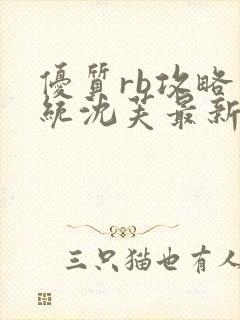 優質rb攻略
統沈芙最新
三只猫也有人